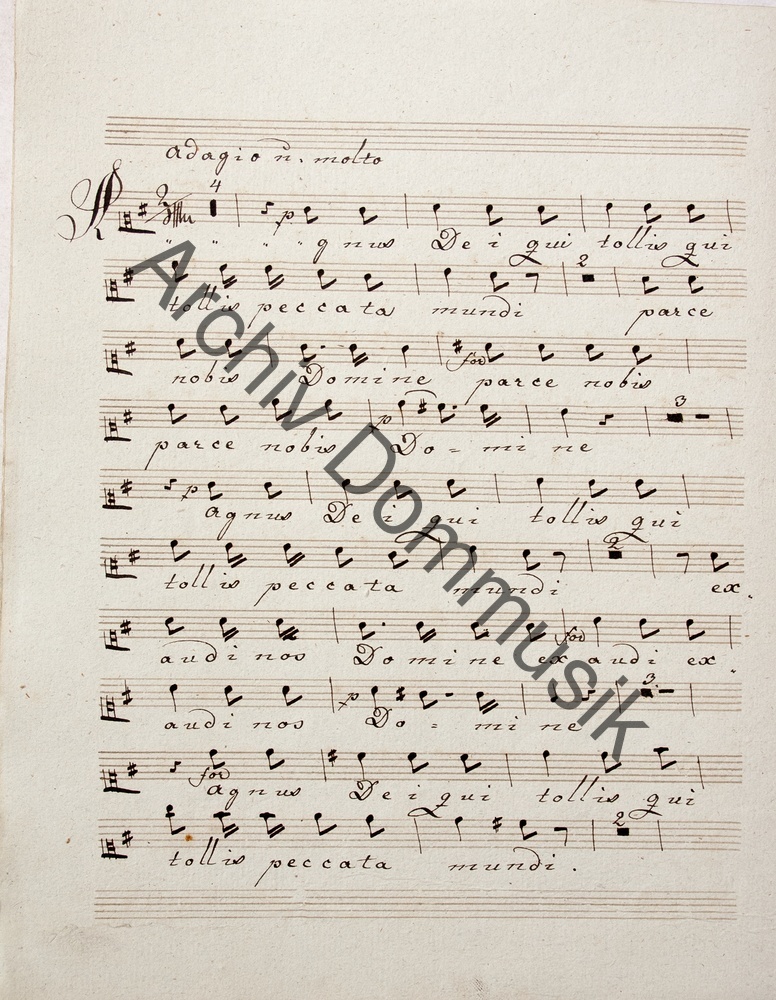 adagio ñ. molto
4
p
A gnus Dei qui tollis qui
2
tollis peccata mundi parce
for
nobis Domine parce nobis
p 3
parce nobis Do = mi ne
p
agnus Dei qui tollis qui
2
tollis peccata mundi ex
for
audi nos Domine exaudi ex
p 3
audi nos Do = mi ne
for
agnus Dei qui tollis qui
2
tollis peccata mundi.
Archiv Dommusik